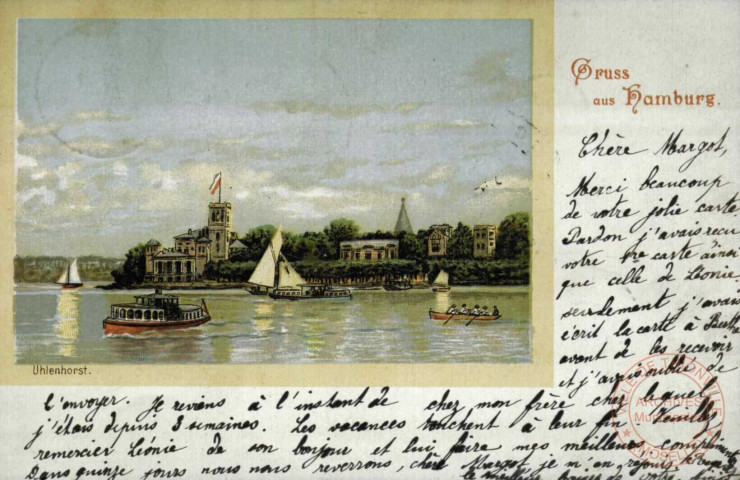 Gruss
aus Hamburg.
Chère Margot,
Merci beaucoup
de votre jolie carte
Pardon j'avais reçu
votre 1re carte ainsi
que celle de Léonie,
seulement j'avais
écrit la carte à Berthe
avant de les recevoir
et j'avais oublié de
Uhlenhorst.
l'envoyer. Je reviens à l'instant de chez mon frère chez lequel
j'étais depuis 3 semaines. Les vacances touchent à leur fin. Veuillez
remercier Léonie de son bonjour et lui faire mes meilleurs compliments
Dans quinze jours nous nous reverrons, chère Margot je m'en réjouis.
VILLE DE THIONVILLE
ARCHIVES
Municipales